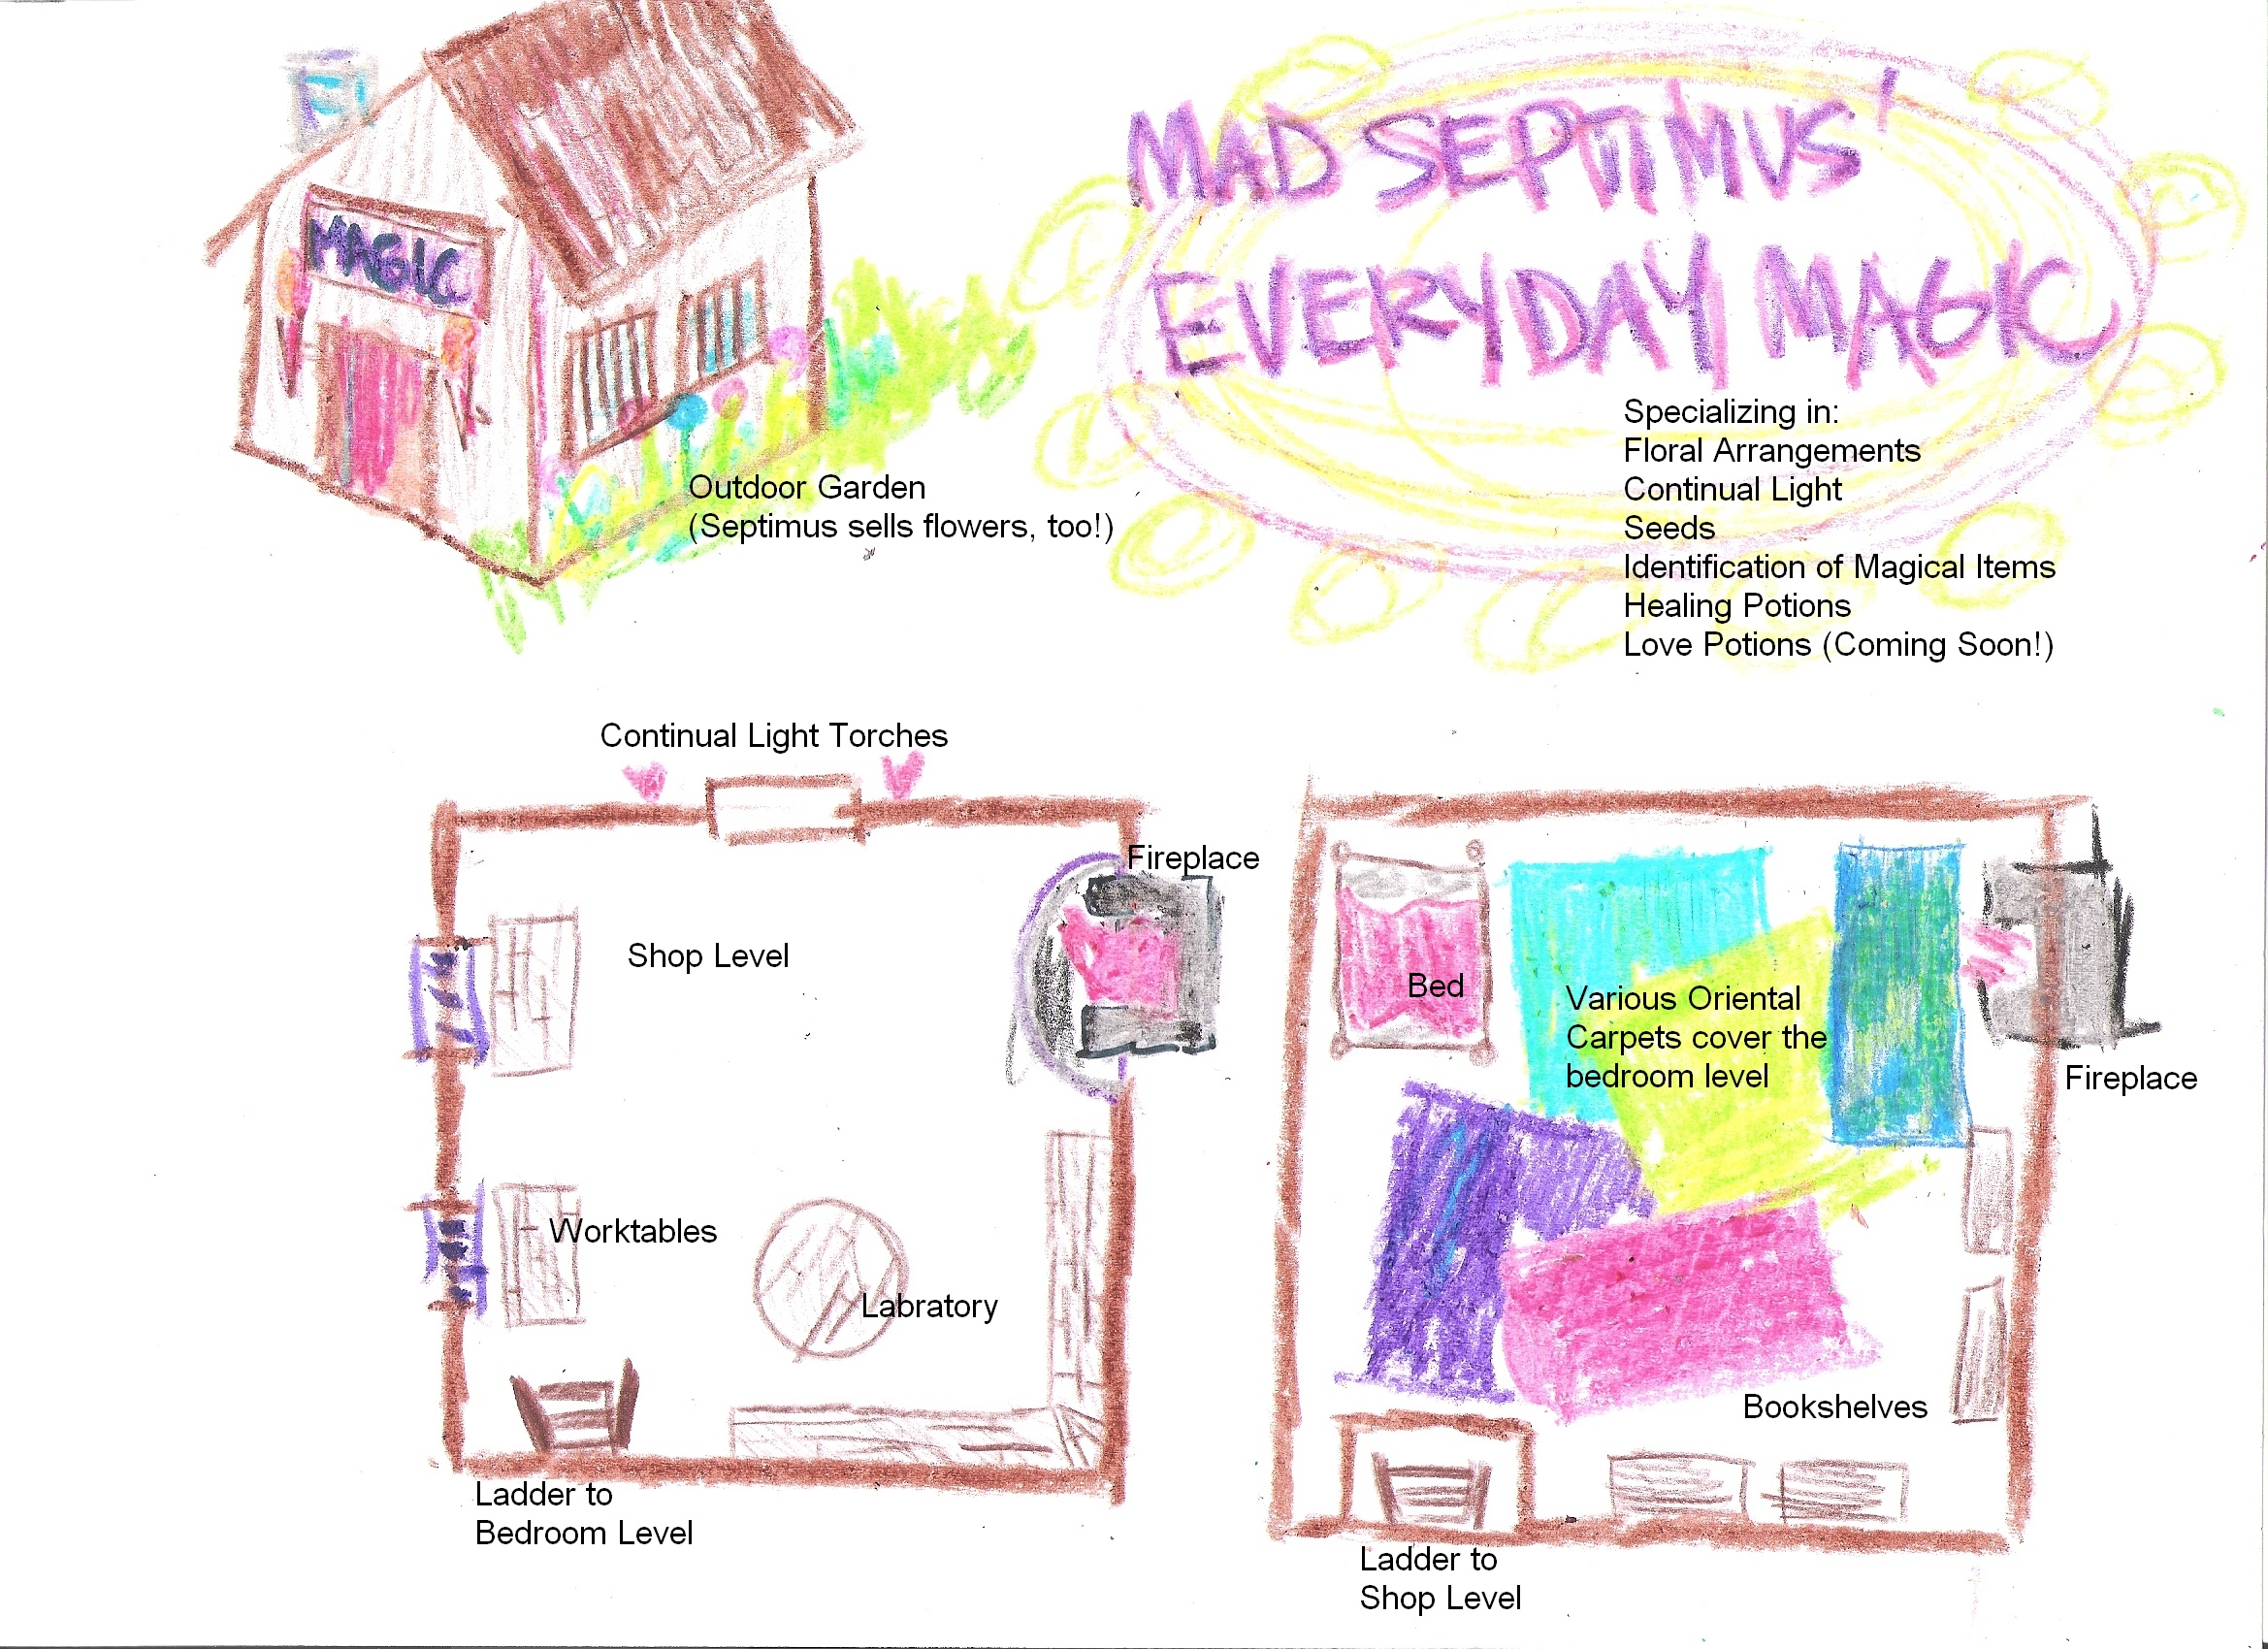 MAGIC
MAD SEPTIMUS'
EVERYDAY MAGIC
Specializing in:
Floral Arrangements
Continual Light
Seeds
Identification of Magical Items
Healing Potions
Love Potions (Coming Soon!)
Outdoor Garden
(Septimus sells flowers, too!)
Continual Light Torches
Fireplace
Shop Level
Worktables
Labratory
Ladder to
Bedroom Level
Bed
Various Oriental
Carpets cover the
bedroom level
Fireplace
Bookshelves
Ladder to
Shop Level